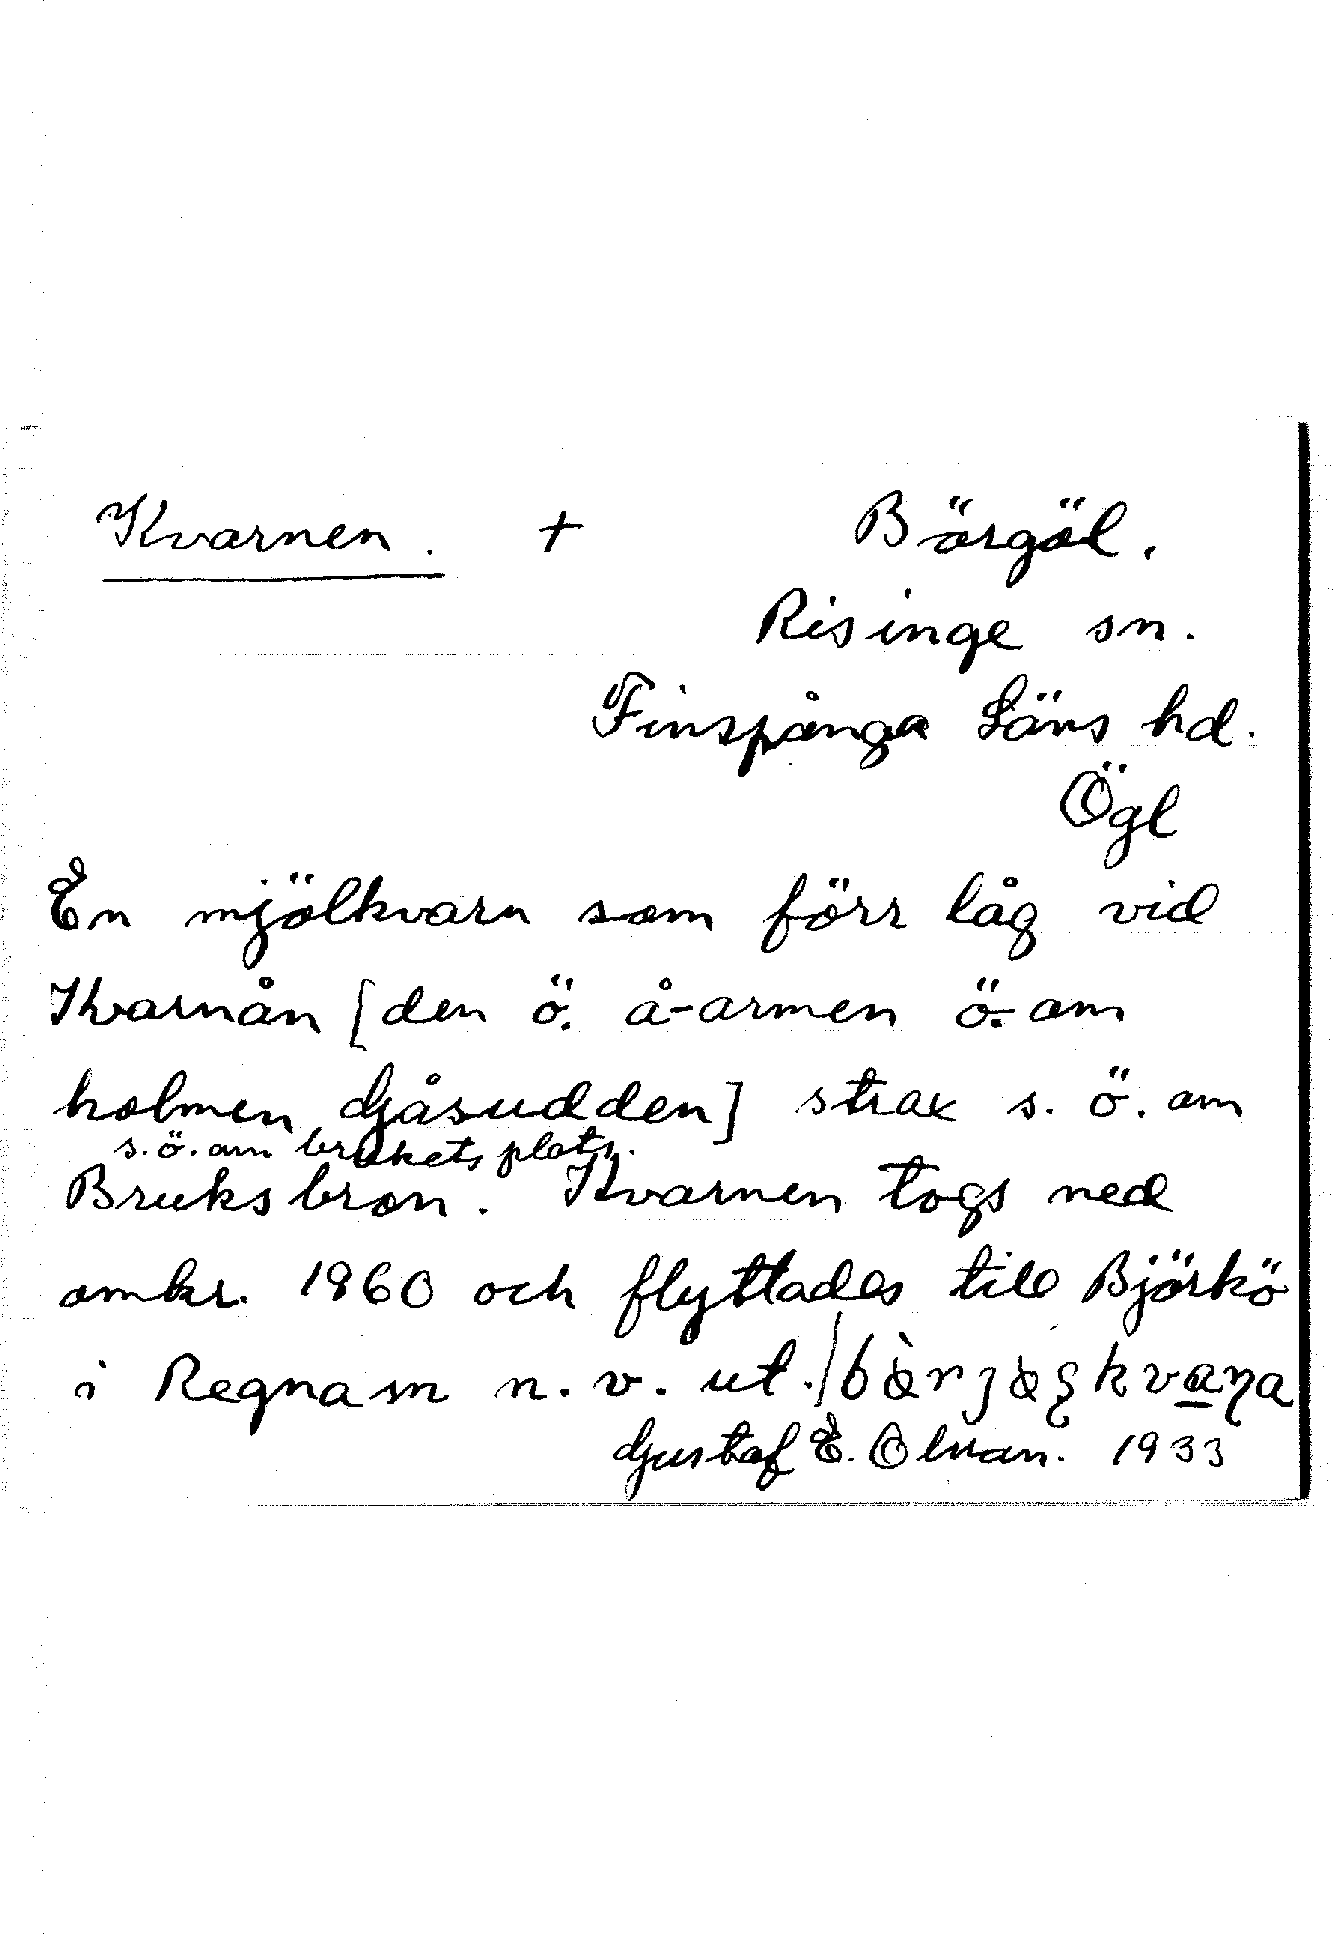 Kvarnen. + Börgöl.
Risinge sn.
Finspånga Läns hd.
Ögl
En mjölkvarn som förr låg vid
Kvarnån [den ö. å-armen ö. om
holmen Gåsudden] strax s. ö. om
s. ö. om brukets plats.
Bruksbron. Kvarnen togs ned
omkr. 1860 och flyttades till Björkö
i Regna sn n. v. ut.
Gustaf E. Olman. 1933